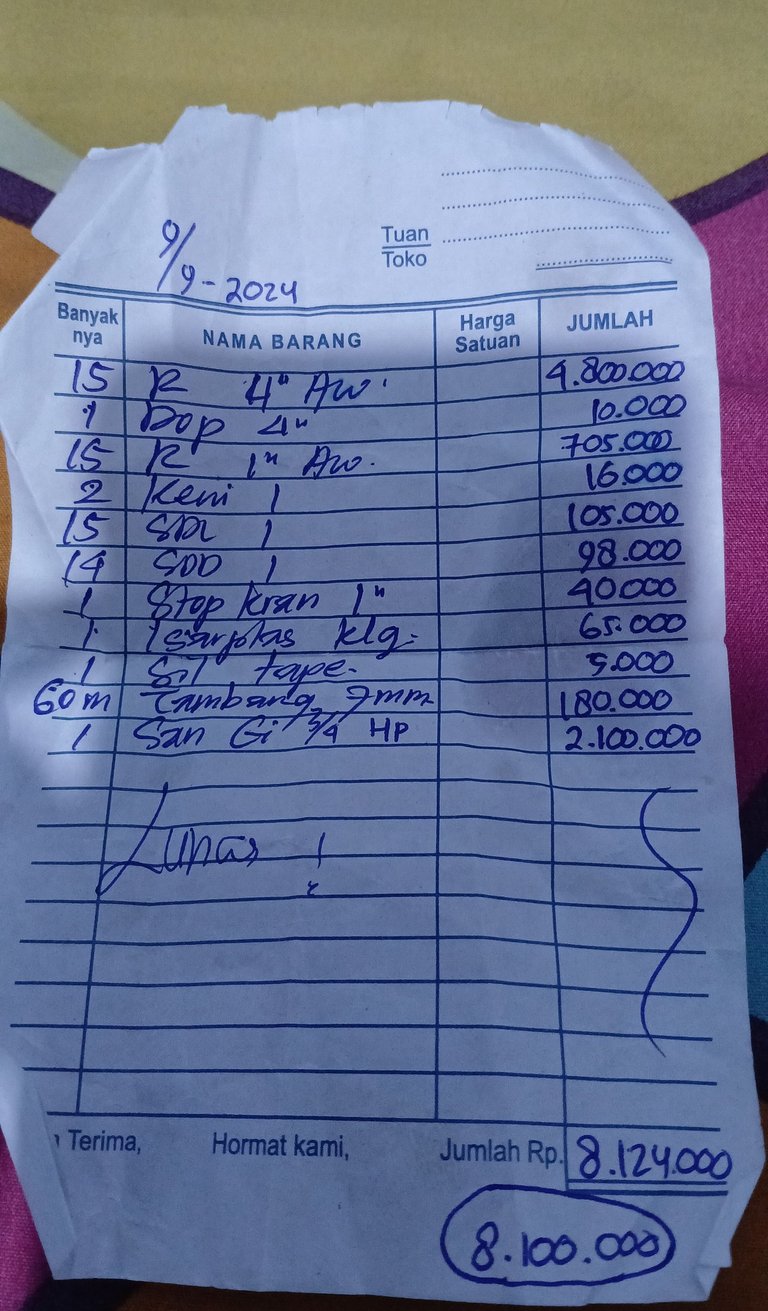 9/9-2024
Tuan
Toko
Banyak nya NAMA BARANG Harga Satuan JUMLAH
15 R 4" Aw. 4.800.000
1 Dop 4" 10.000
15 R 1" Aw. 705.000
2 Keni 1 16.000
15 SDL 1 105.000
14 SDD 1 98.000
1 Stop kran 1" 40.000
1 Isarplas klg. 65.000
1 Sil tape. 5.000
60m Tambang 7mm 180.000
1 San Gi 3/4 HP 2.100.000
Lunas !
Terima, Hormat kami, Jumlah Rp. 8.124.000
8.100.000